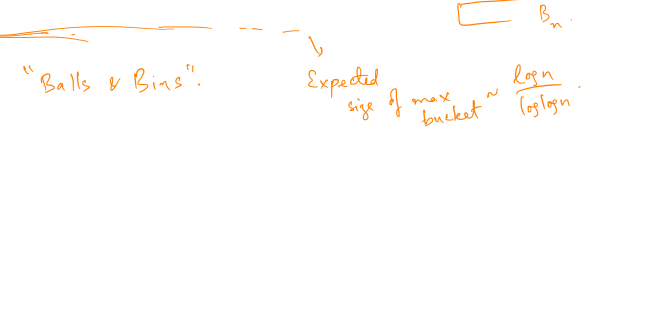 Bn.
"Balls & Bins".
Expected
size of max
bucket ~ logn / loglogn.